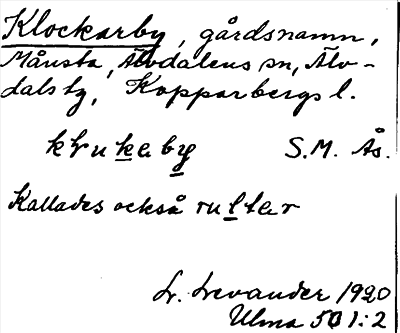 Klockarby, gårdsnamn,
Månsta, Älvdalens sn, Älv-
dals tg, Kopparbergs l.
klrukaby S.M. Ås.
Kallades också rultar
L. Levander 1920
Ulma 501:2